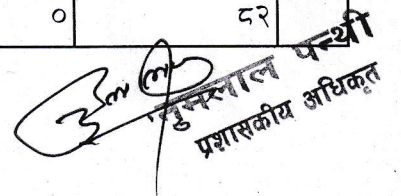 ० ८२
तुमलाल पन्थी
प्रशासकीय अधिकृत